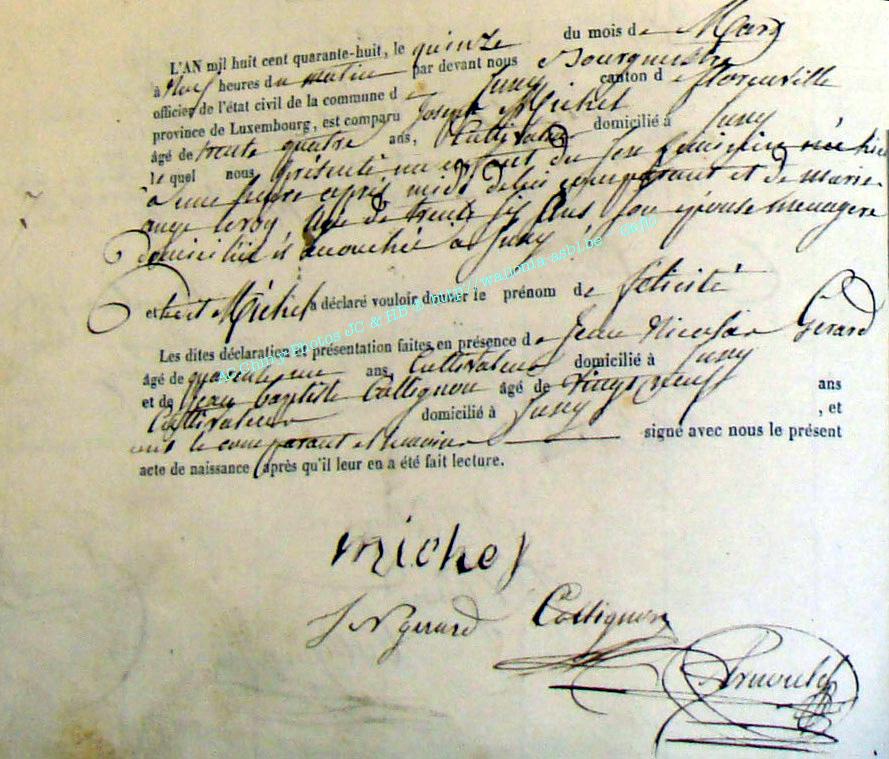 L'AN mil huit cent quarante-huit, le quinze du mois de Mars
à Neuf heures du matin par devant nous Bourgmestre
officier de l'état civil de la commune de Juny canton de florenville
province de Luxembourg, est comparu Joseph Michel
âgé de trente quatre ans, Cultivateur domicilié à Juny
le quel nous présenté un enfant du sexe né hier
à une heure après midi de lui comparant et de marie
ange leroy âgée de trente six ans son épouse menagere
domiciliée à Juny
et Michel a déclaré vouloir donner le prénom de felicité
Les dites déclaration et présentation faites en présence de Jean Nicolas Gerard
âgé de quarante ans, Cultivateur domicilié à Juny
et de jean baptiste Collignon âgé de vingt neuf ans
Cultivateur domicilié à Juny , et
ont le comparant et temoins signé avec nous le présent
acte de naissance après qu'il leur en a été fait lecture.
michel
J N gerard Collignon
AC Chiny Photos JC & HB © http://wallonia-asbl.be